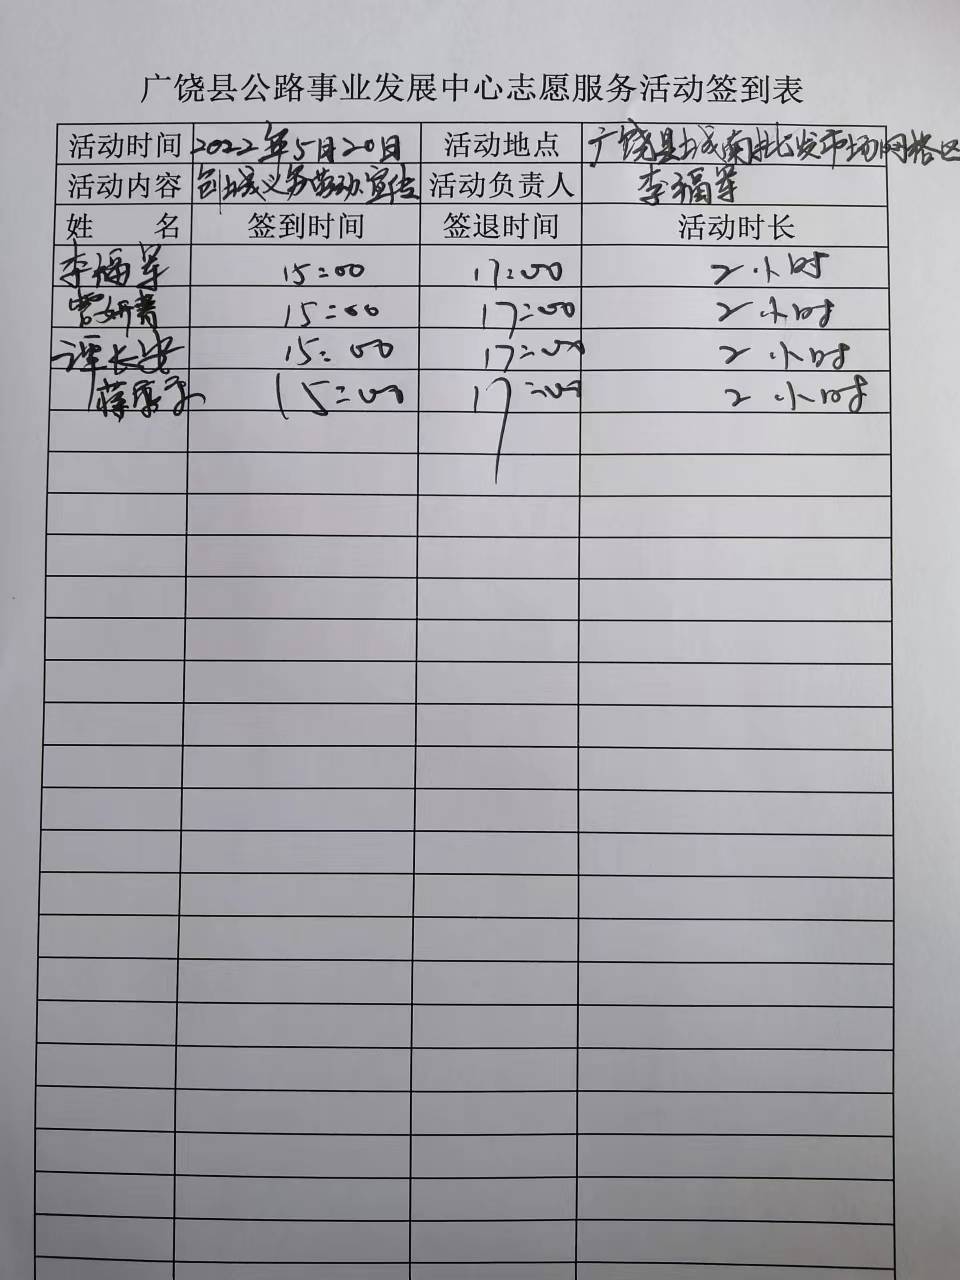 广饶县公路事业发展中心志愿服务活动签到表
活动时间 2022年5月20日 活动地点 广饶县城南批发市场网格区
活动内容 创城义务劳动宣传 活动负责人 李福军
姓 名 签到时间 签退时间 活动时长
李福军 15:00 17:00 2小时
15:00 17:00 2小时
谭长安 15:00 17:00 2小时
15:00 17:00 2小时